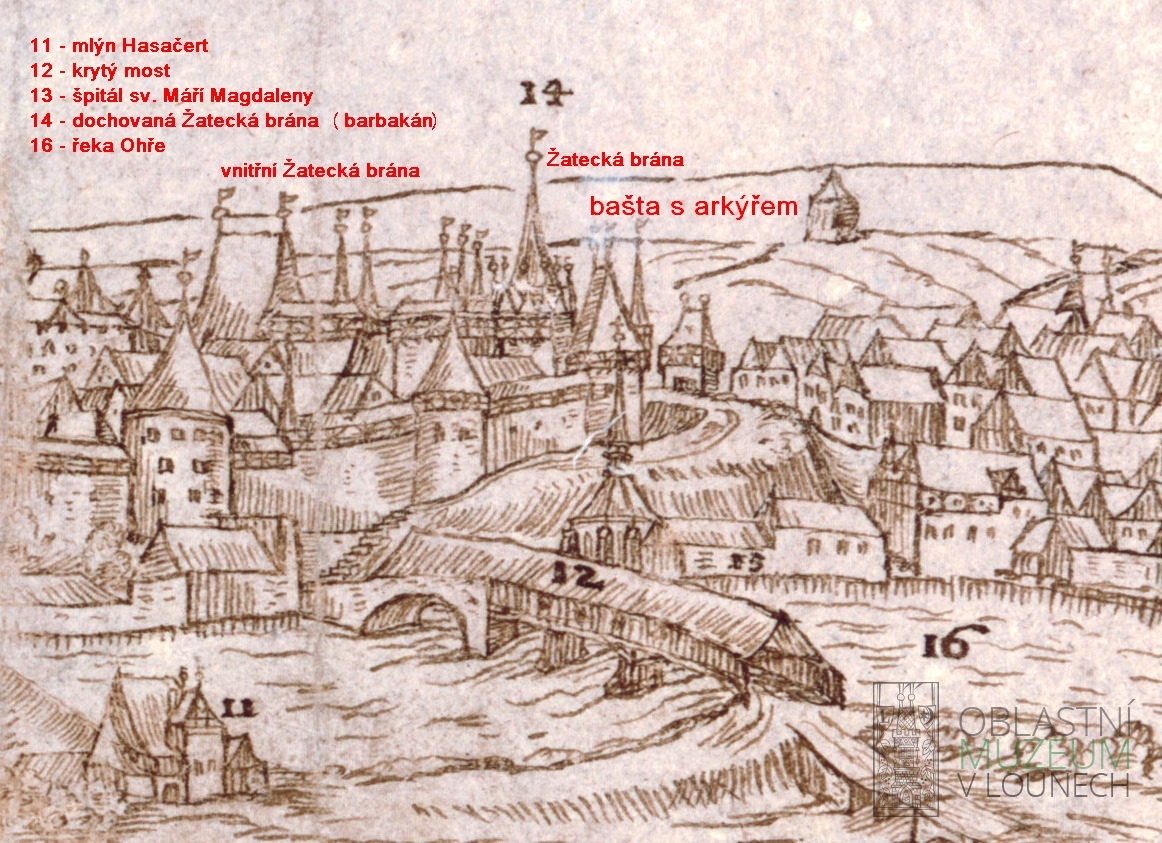 11 - mlýn Hasačert
12 - krytý most
13 - špitál sv. Máří Magdaleny
14 - dochovaná Žatecká brána ( barbakán)
16 - řeka Ohře
14
Žatecká brána
vnitřní Žatecká brána
bašta s arkýřem
13
12
16
11
OBLASTNÍ
MUZEUM
V LOUNECH